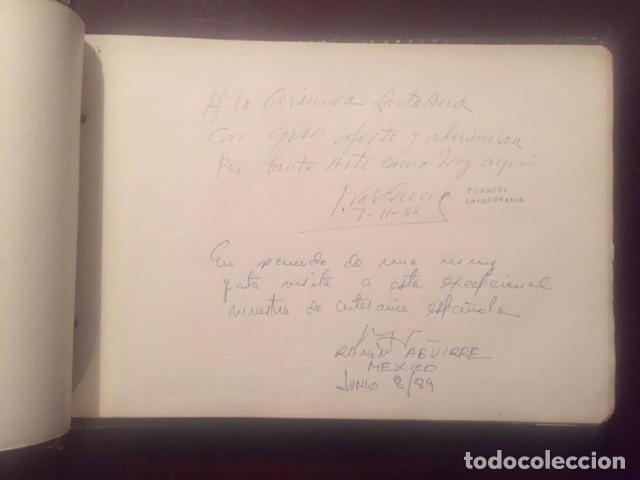 A la Cerámica Santa Ana
Con gran afecto y admiracion
Por tanto Arte como hay aqui
7-11-88
JUANITO
VALDERRAMA
En recuerdo de una muy
grata visita a esta excepcional
muestra de artesania española
RAMON AGUIRRE
MEXICO
JUNIO 8/89
todocoleccion